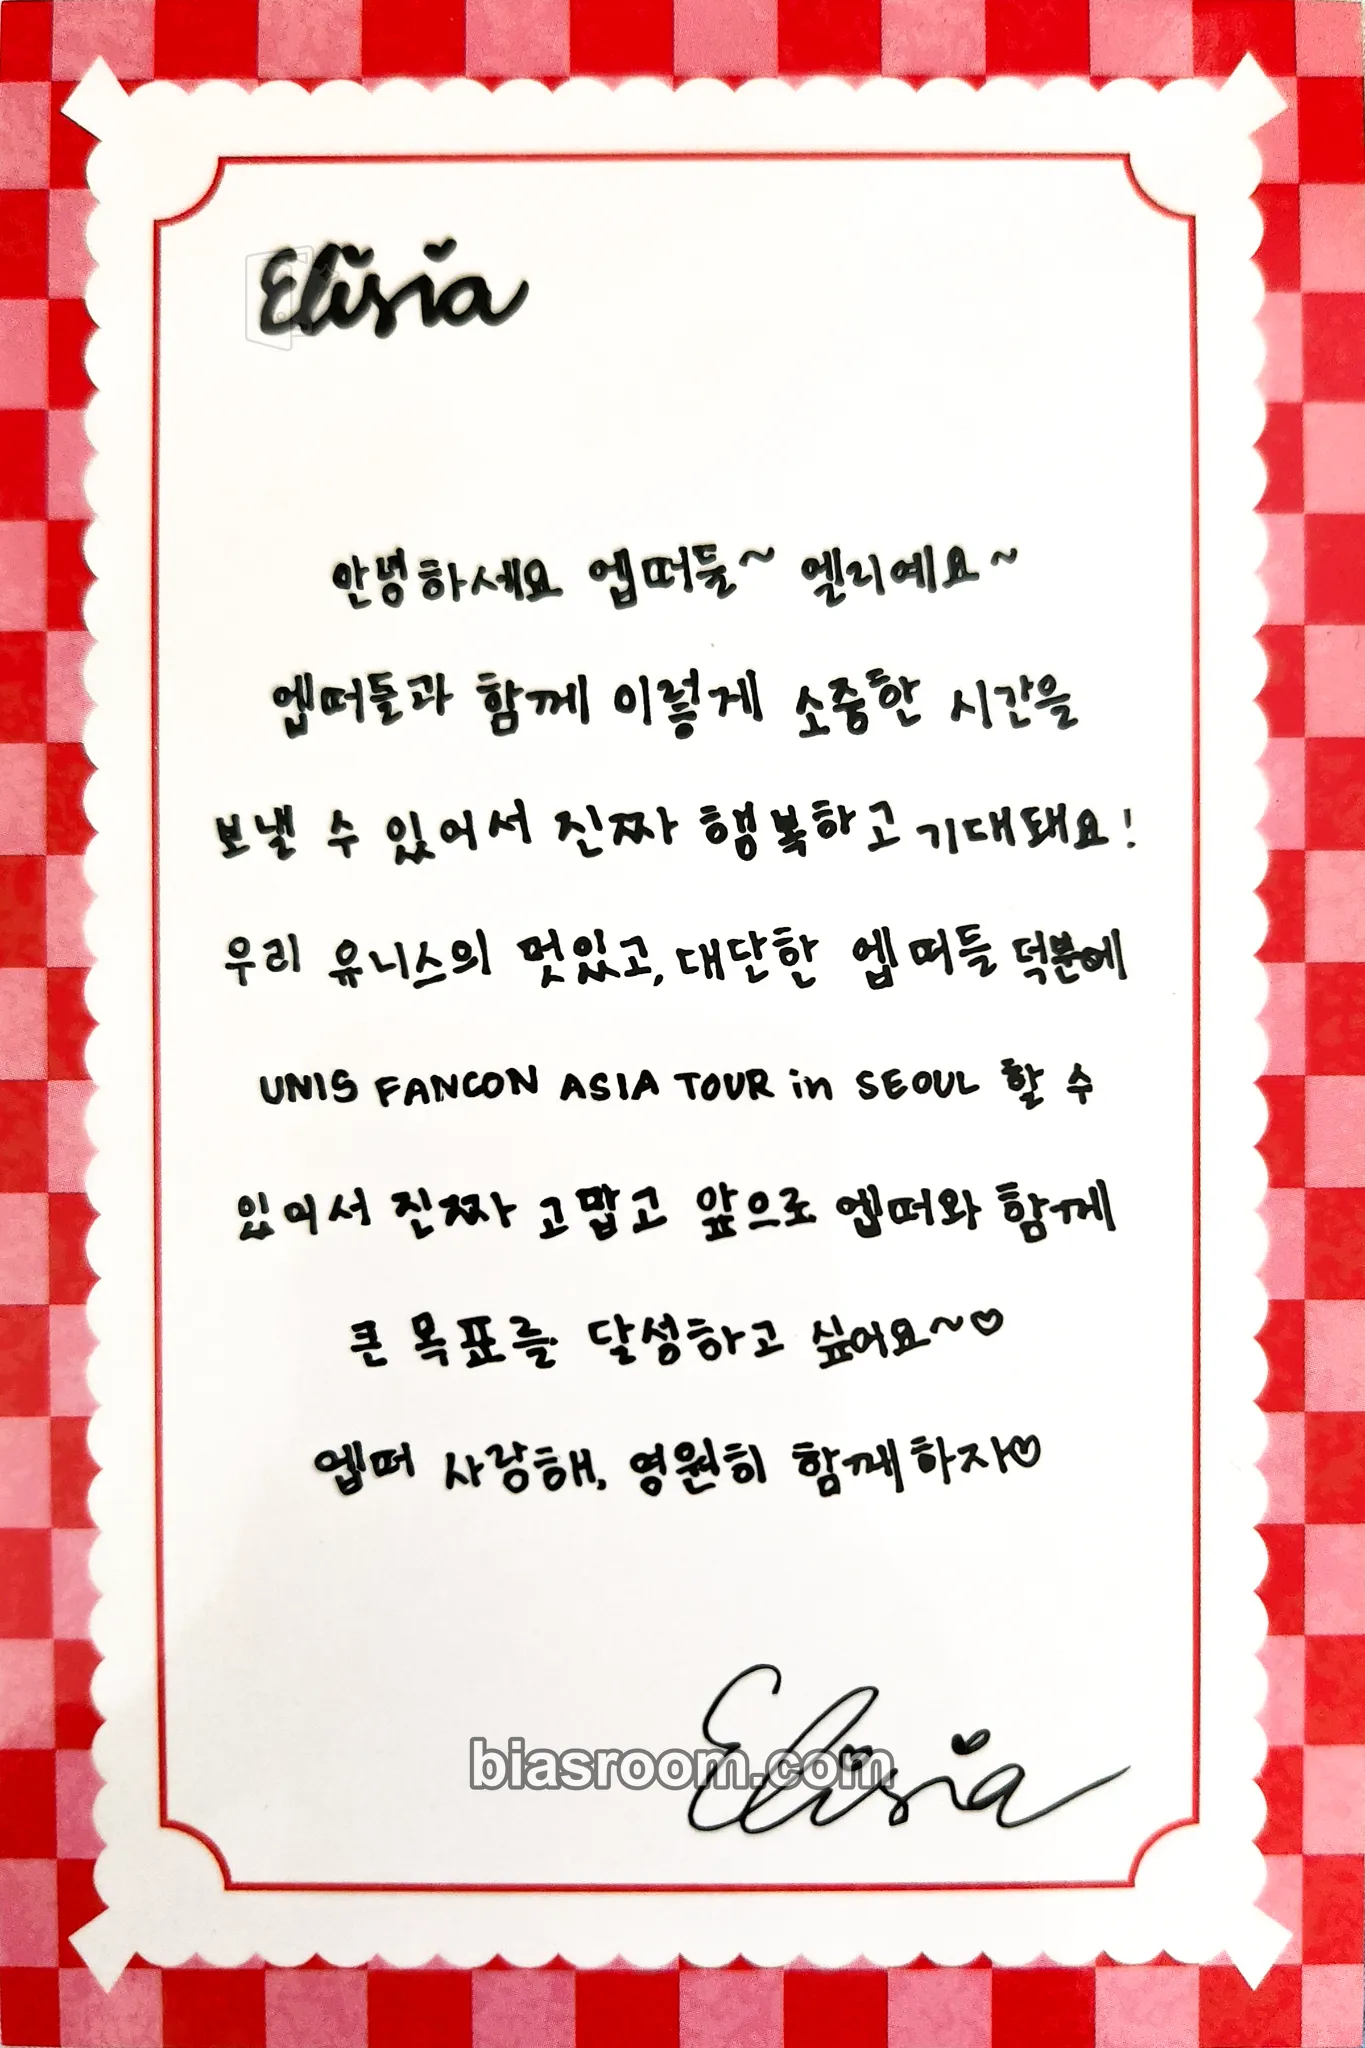 Elisia
안녕하세요 엡떠들~ 엘리예요~
엡떠들과 함께 이렇게 소중한 시간을
보낼 수 있어서 진짜 행복하고 기대돼요!
우리 유니스의 멋있고, 대단한 엡떠들 덕분에
UNIS FANCON ASIA TOUR in SEOUL 할 수
있어서 진짜 고맙고 앞으로 엡떠와 함께
큰 목표를 달성하고 싶어요~♡
엡떠 사랑해, 영원히 함께하자♡
Elisia
biasroom.com